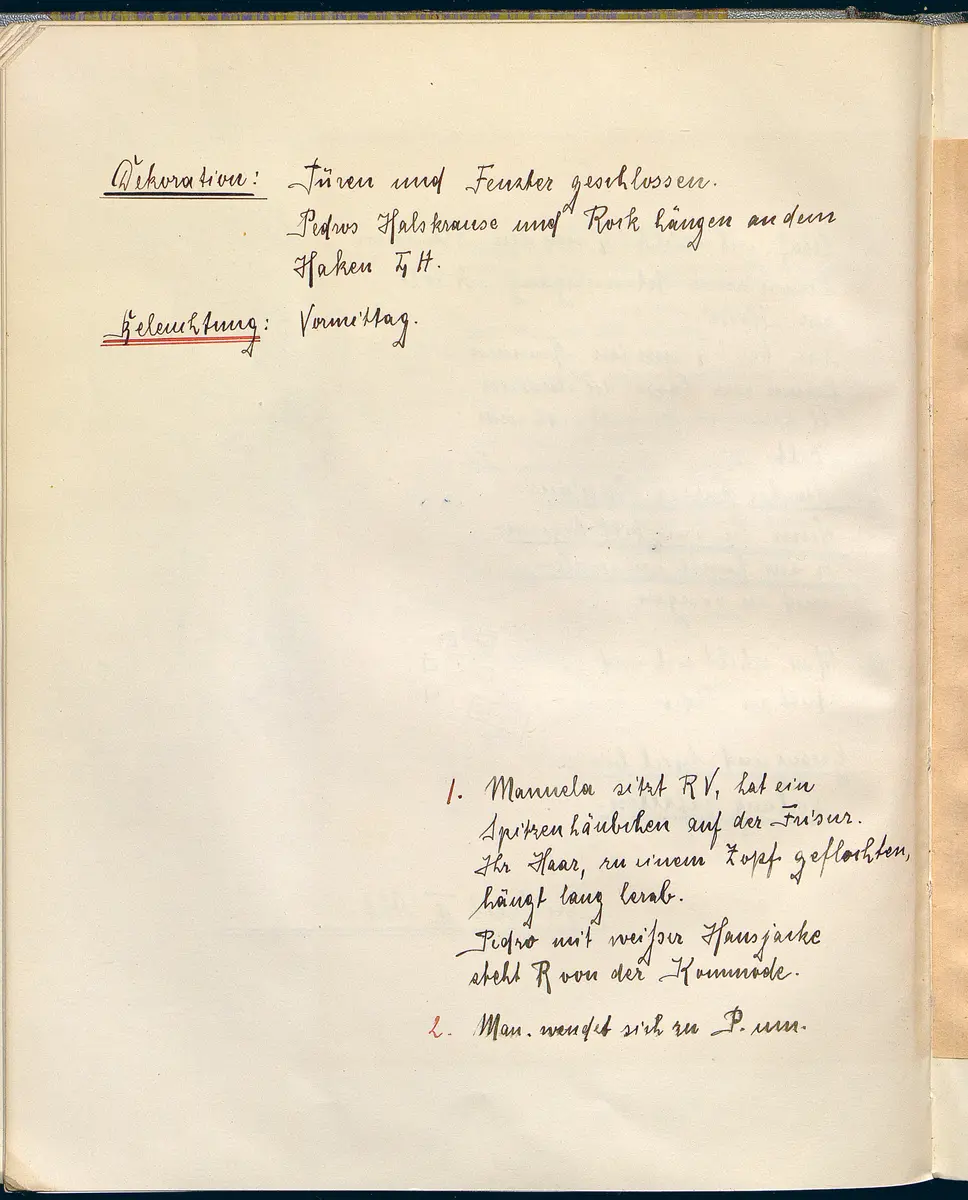 Dekoration: Türen und Fenster geschlossen.
Pedros Halskrause und Rock hängen an dem
Haken H.
Beleuchtung: Vormittag.
1. Manuela sitzt RV, hat ein
Spitzenhäubchen auf der Frisur.
Ihr Haar, zu einem Zopf geflochten,
hängt lang herab.
Pedro mit weißer Hausjacke
steht R von der Kommode.
2. Man. wendet sich zu P. um.